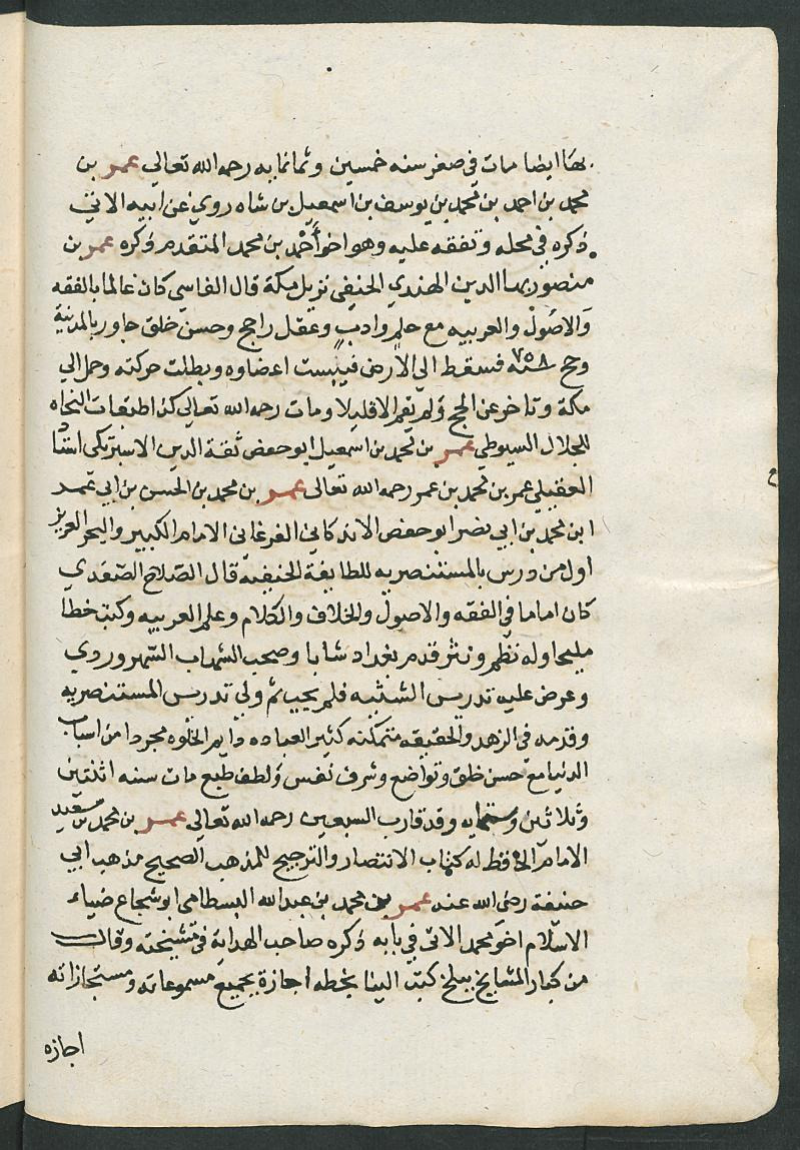 بها ايضا مات في صفر سنه خمسين وثمانمايه رحمه الله تعالى عمر بن
محمد بن احمد بن محمد بن يوسف بن اسمعيل بن شاه روي عن ابيه الاتي
ذكره في محله وتفقه عليه وهو اخو أحمد بن محمد المتقدم ذكره عمر بن
منصور بهاالدين الهندي الحنفي نزيل مكة قال الفاسي كان عالما بالفقه
والاصول والعربيه مع حلم وادب وعقل راجح وحسن خلق جاور بالمدينة
وحج سنة ٧٥٨ فسقط الى الارض فيبست اعضاوه وبطلت حركته وحمل الي
مكة وتاخر عن الحج ولم يقم الا قليلا ومات رحمه الله تعالى كذا طبقات النحاه
للجلال السيوطي عمر بن محمد بن اسمعيل ابو حفص ثقة الدين
العقيلي عمر بن محمد بن عمر رحمه الله تعالى عمر بن محمد بن الحسن بن ابي عمر
ابن محمد بن ابي نصر ابو حفص الاندكاني الفرغاني الامام الكبير والبحر الغزير
اول من درس بالمستنصريه للطايفة الحنفيه قال الصلاح الصفدي
كان اماما في الفقه والاصول والخلاف والكلام وعلم العربيه وكتب خطا
مليحا وله نظم ونثر قدم بغداد شابا وصحب الشهاب السهروردي
وعرض عليه تدريس التتشيه فلم يجب ثم ولي تدريس المستنصريه
وقدمه في الزهد والحقيقه متمكنه كثير العباده دايم الخلوه مجردا من اسباب
الدنيا مع حسن خلق وتواضع وشرف نفس ولطف طبع مات سنه اثنتين
وثلاثين وستمايه وقد قارب السبعين رحمه الله تعالى عمر بن محمد بن سعيد
الامام الحافظ له كتاب الانتصار والترجيح للمذهب الصحيح مذهب ابي
حنيفة رضى الله عنه عمر بن محمد بن عبدالله البسطامي ابو شجاع ضياء
الاسلام اخو محمد الاتي في بابه ذكره صاحب الهداية في مشيخته وقال
من كبار المشايخ ببلخ كتب الينا بخطه اجازة بجميع مسموعاته ومستجازاته
اجازه